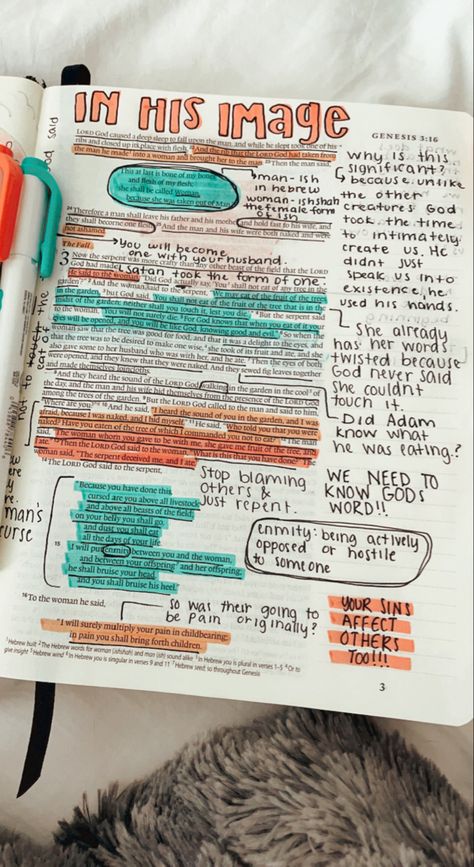 IN HIS IMAGE
GENESIS 3:16
LORD God caused a deep sleep to fall upon the man, and while he slept took one of his
ribs and closed up its place with flesh. ²² And the rib that the LORD God had taken
from the man he made into a woman and brought her to the man. ²³ Then the man said,
"This at last is bone of my bones
and flesh of my flesh;
she shall be called Woman,
because she was taken out of Man."
man - ish
in hebrew
woman - ishshah
the female form
of ish
²⁴ Therefore a man shall leave his father and his mother and hold fast to his wife, and
they shall become one flesh. ²⁵ And the man and his wife were both naked and were
not ashamed.
You will become
one with your husband.
The Fall
satan took the form of one.
3 Now the serpent was more crafty than any other beast of the field that the LORD
God had made.
He said to the woman, "Did God actually say, 'You shall not eat of any tree in the
garden'?" ² And the woman said to the serpent, "We may eat of the fruit of the trees
in the garden, ³ but God said, 'You shall not eat of the fruit of the tree that is in the
midst of the garden, neither shall you touch it, lest you die.'" ⁴ But the serpent said
to the woman, "You will not surely die. ⁵ For God knows that when you eat of it your
eyes will be opened, and you will be like God, knowing good and evil." ⁶ So when the
woman saw that the tree was good for food, and that it was a delight to the eyes, and
that the tree was to be desired to make one wise, she took of its fruit and ate, and she
also gave some to her husband who was with her, and he ate. ⁷ Then the eyes of both
were opened, and they knew that they were naked. And they sewed fig leaves together
and made themselves loincloths.
⁸ And they heard the sound of the LORD God walking in the garden in the cool of
the day, and the man and his wife hid themselves from the presence of the LORD God
among the trees of the garden. ⁹ But the LORD God called to the man and said to him,
"Where are you?" ¹⁰ And he said, "I heard the sound of you in the garden, and I was
afraid, because I was naked, and I hid myself." ¹¹ He said, "Who told you that you were
naked? Have you eaten of the tree of which I commanded you not to eat?" ¹² The man
said, "The woman whom you gave to be with me, she gave me fruit of the tree, and
I ate." ¹³ Then the LORD God said to the woman, "What is this that you have done?" The
woman said, "The serpent deceived me, and I ate."
¹⁴ The LORD God said to the serpent,
"Because you have done this,
cursed are you above all livestock
and above all beasts of the field;
on your belly you shall go,
and dust you shall eat
all the days of your life.
15 I will put enmity between you and the woman,
and between your offspring and her offspring;
he shall bruise your head,
and you shall bruise his heel."
¹⁶ To the woman he said,
"I will surely multiply your pain in childbearing;
in pain you shall bring forth children.
why is this
significant?
because unlike
the other
creatures God
took the time
to intimately
create us. He
didnt just
speak us into
existence, he
used his hands.
She already
has her words
twisted because
God never said
she couldnt
touch it.
Did Adam
know what
he was eating?
Stop blaming
others &
just repent.
WE NEED TO
KNOW GODS
WORD!!
enmity: being actively
opposed or hostile
to someone
so was their going to
be pain originally?
YOUR SINS
AFFECT
OTHERS
TOO!!!
God said
not to eat of the
were
man's
curse
¹ Hebrew built ² The Hebrew words for woman (ishshah) and man (ish) sound alike ³ In Hebrew you is plural in verses 1–5 ⁴ Or to
give insight ⁵ Hebrew wind ⁶ In Hebrew you is singular in verses 9 and 11 ⁷ Hebrew seed; so throughout Genesis
3